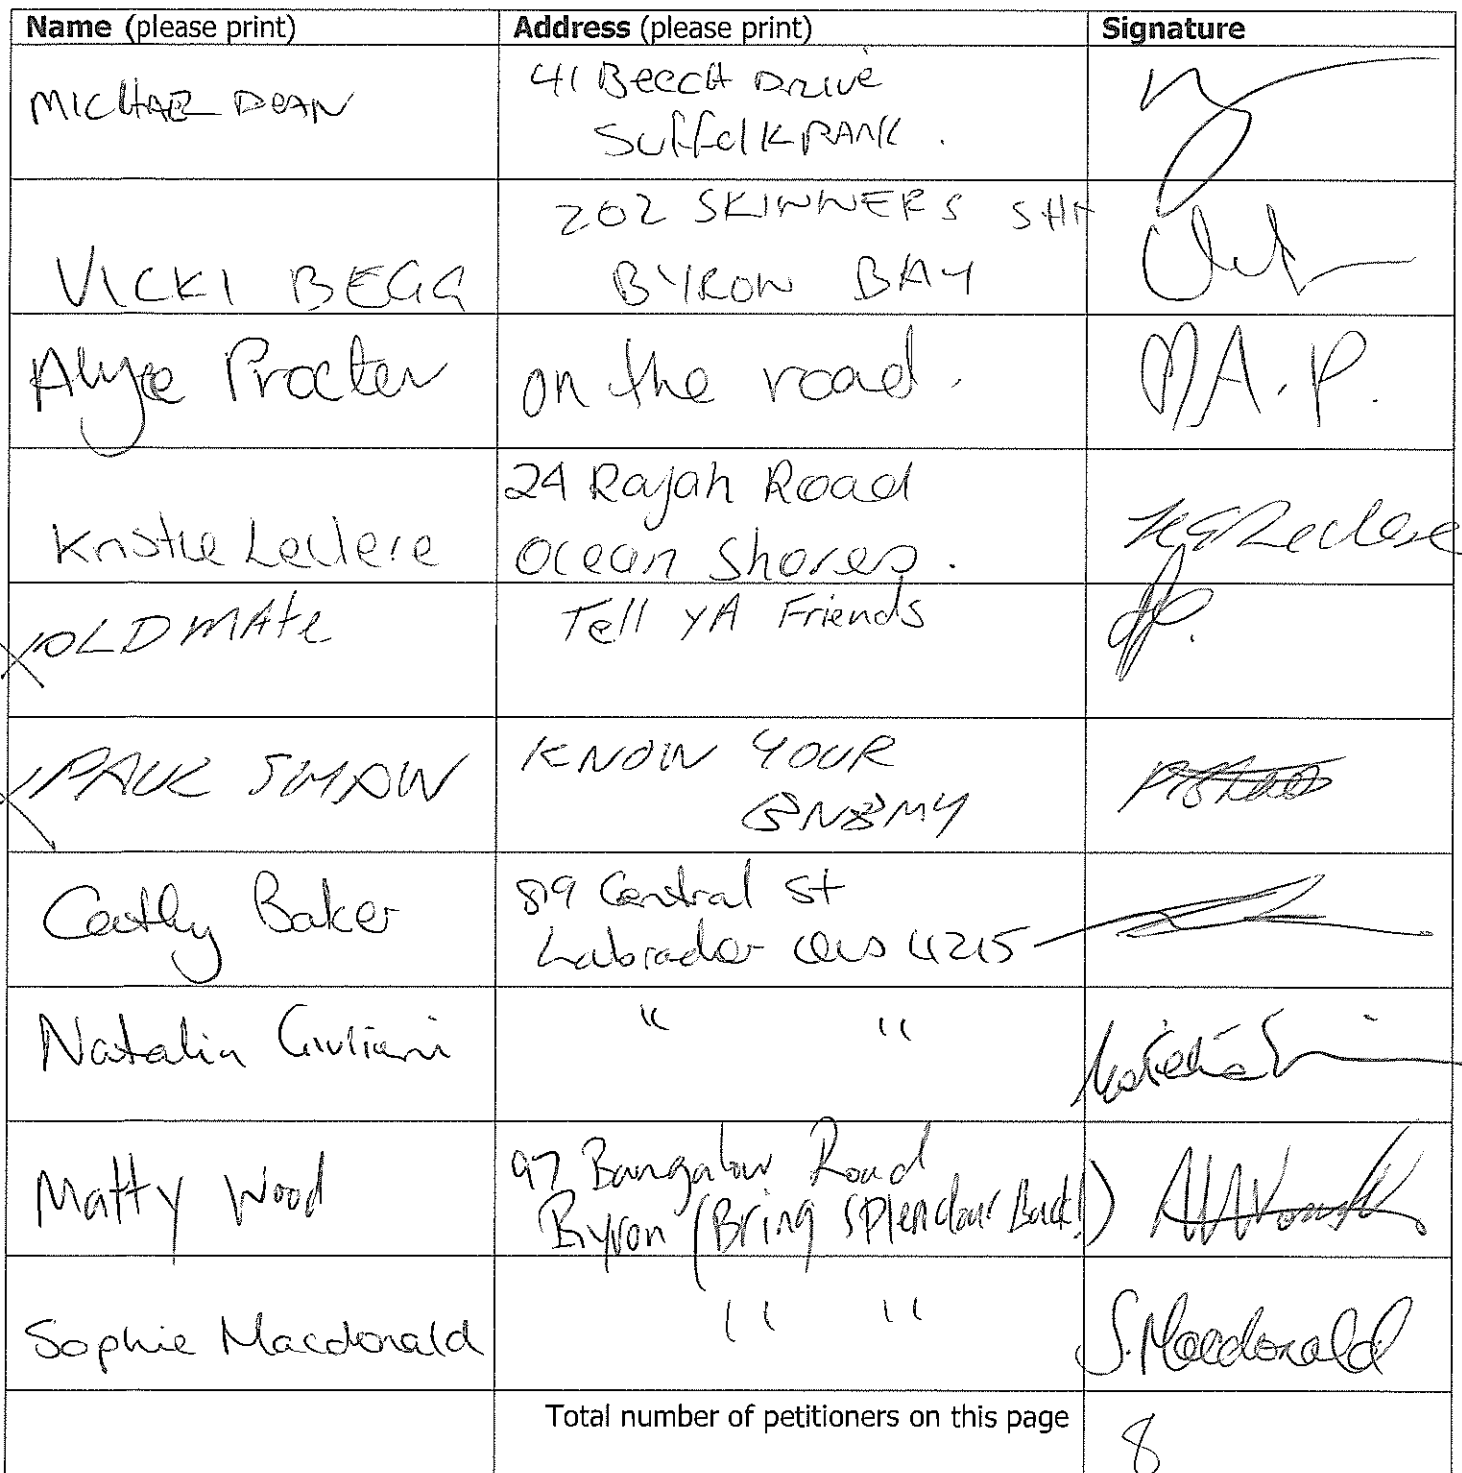 Name (please print) Address (please print) Signature
MICHAEL DEAN 41 Beech Drive
Suffolk PARK .
202 SKINNERS SHT
VICKI BEGG BYRON BAY
Alyce Procter on the road . A.P.
24 Rajah Road
Kristie Leclere Ocean Shores . Leclere
X OLD MAte Tell YA Friends
X PAUL SHAW KNOW YOUR
ENEMY
Cathy Baker 8/9 Central St
Labrador QLD 4215
Natalia Giuliani " "
Matty Wood 97 Bangalow Road
Byron (Bring Splendour Back!)
Sophie Macdonald " " S. Macdonald
Total number of petitioners on this page 8